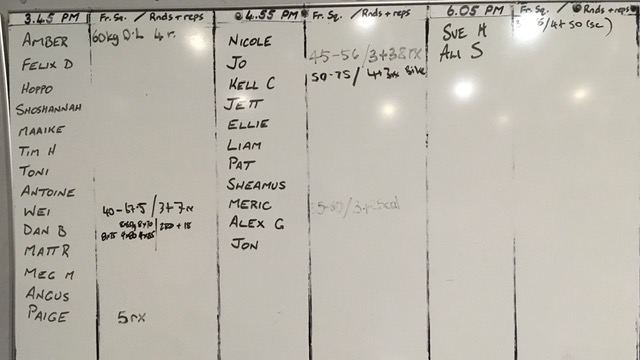 3.45 PM Fr. Sq. / Rnds + reps
AMBER 60kg D.L 4 r.
FELIX D
HOPPO
SHOSHANNAH
MAAIKE
TIM H
TONI
ANTOINE
WEI 40-67.5 / 3+7rx
DAN B
MATT R
MEG M
ANGUS
PAIGE 5rx
4.55 PM Fr. Sq. / Rnds + reps
NICOLE
JO 45-56 / 3+38rx
KELL C 50-75 / 4+3rx
JETT
ELLIE
LIAM
PAT
SHEAMUS
MERIC
ALEX G
JON
6.05 PM Fr. Sq. / Rnds + reps
SUE H /4+50 (sc)
ALI S